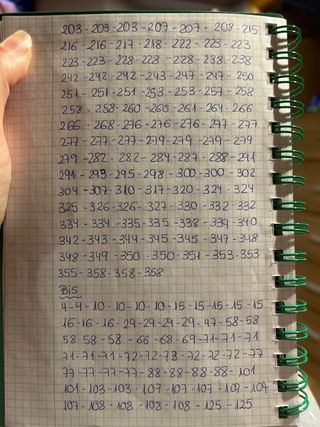 203-203-203-207-207-208-215
216-216-217-218-222-223-223
223-223-228-228-228-238-238
242-242-242-243-247-247-250
251-251-251-253-253-257-258
258-258-260-260-261-264-266
266-268-276-276-276-277-277
277-277-277-279-279-279-279
279-282-282-284-287-288-291
291-293-295-298-300-300-302
304-307-310-317-320-324-324
325-326-326-327-330-332-332
334-334-335-335-338-339-340
342-343-344-345-345-347-348
348-349-350-350-351-353-353
355-358-358-358
Bis
4-4-10-10-10-10-15-15-15-15-15
16-16-16-29-29-29-29-47-58-58
58-58-58-66-68-69-71-71-71
71-71-71-72-72-72-72-72-72-77
77-77-77-77-88-88-88-88-101
101-103-103-107-107-107-107-107
107-108-108-108-108-125-125